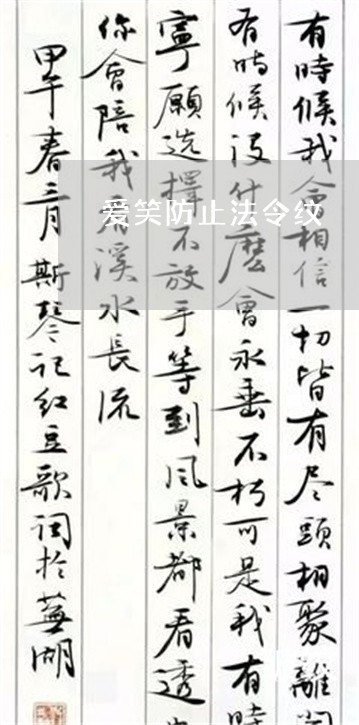 有時候我會相信一切皆有尽頭相聚離
有時候没什麼會永垂不朽可是我有時
寧願选擇不放手等到风景都看透
你會陪我看溪水長流
甲午春三月斯琴记红豆歌词扵蕪湖
爱笑防止法令纹